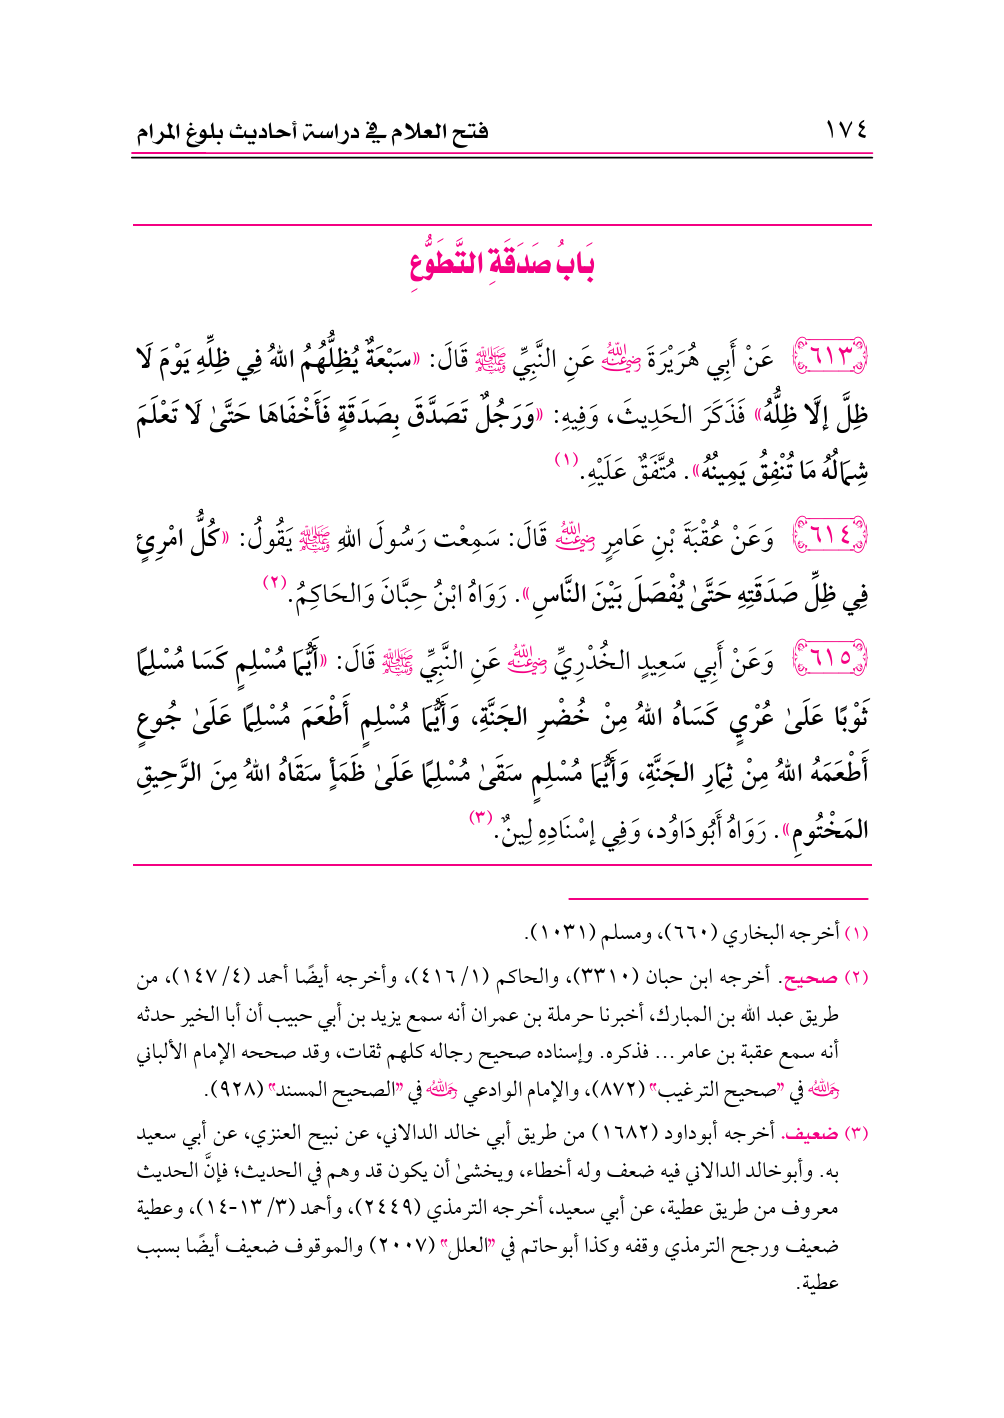 ١٧٤ فتح العلام في دراسة أحاديث بلوغ المرام
بَابُ صَدَقَةِ التَّطَوُّعِ
٦١٣ عَنْ أَبِي هُرَيْرَةَ رضي الله عنه عَنِ النَّبِيِّ ﷺ قَالَ: «سَبْعَةٌ يُظِلُّهُمُ اللهُ فِي ظِلِّهِ يَوْمَ لَا
ظِلَّ إلَّا ظِلُّهُ» فَذَكَرَ الحَدِيثَ، وَفِيهِ: «وَرَجُلٌ تَصَدَّقَ بِصَدَقَةٍ فَأَخْفَاهَا حَتَّىٰ لَا تَعْلَمَ
شِمَالُهُ مَا تُنْفِقُ يَمِينُهُ». مُتَّفَقٌ عَلَيْهِ.(١)
٦١٤ وَعَنْ عُقْبَةَ بْنِ عَامِرٍ رضي الله عنه قَالَ: سَمِعْت رَسُولَ اللهِ ﷺ يَقُولُ: «كُلُّ امْرِئٍ
فِي ظِلِّ صَدَقَتِهِ حَتَّىٰ يُفْصَلَ بَيْنَ النَّاسِ». رَوَاهُ ابْنُ حِبَّانَ وَالحَاكِمُ.(٢)
٦١٥ وَعَنْ أَبِي سَعِيدٍ الخُدْرِيِّ رضي الله عنه عَنِ النَّبِيِّ ﷺ قَالَ: «أَيُّمَا مُسْلِمٍ كَسَا مُسْلِمًا
ثَوْبًا عَلَىٰ عُرْيٍ كَسَاهُ اللهُ مِنْ خُضْرِ الجَنَّةِ، وَأَيُّمَا مُسْلِمٍ أَطْعَمَ مُسْلِمًا عَلَىٰ جُوعٍ
أَطْعَمَهُ اللهُ مِنْ ثِمَارِ الجَنَّةِ، وَأَيُّمَا مُسْلِمٍ سَقَىٰ مُسْلِمًا عَلَىٰ ظَمَأٍ سَقَاهُ اللهُ مِنَ الرَّحِيقِ
المَخْتُومِ». رَوَاهُ أَبُودَاوُد، وَفِي إسْنَادِهِ لِينٌ.(٣)
(١) أخرجه البخاري (٦٦٠)، ومسلم (١٠٣١).
(٢) صحيح. أخرجه ابن حبان (٣٣١٠)، والحاكم (١/ ٤١٦)، وأخرجه أيضًا أحمد (٤/ ١٤٧)، من
طريق عبد الله بن المبارك، أخبرنا حرملة بن عمران أنه سمع يزيد بن أبي حبيب أن أبا الخير حدثه
أنه سمع عقبة بن عامر... فذكره. وإسناده صحيح رجاله كلهم ثقات، وقد صححه الإمام الألباني
رحمه الله في "صحيح الترغيب" (٨٧٢)، والإمام الوادعي رحمه الله في "الصحيح المسند" (٩٢٨).
(٣) ضعيف. أخرجه أبوداود (١٦٨٢) من طريق أبي خالد الدالاني، عن نبيح العنزي، عن أبي سعيد
به. وأبوخالد الدالاني فيه ضعف وله أخطاء، ويخشىٰ أن يكون قد وهم في الحديث؛ فإنَّ الحديث
معروف من طريق عطية، عن أبي سعيد، أخرجه الترمذي (٢٤٤٩)، وأحمد (٣/ ١٣-١٤)، وعطية
ضعيف ورجح الترمذي وقفه وكذا أبوحاتم في "العلل" (٢٠٠٧) والموقوف ضعيف أيضًا بسبب
عطية.